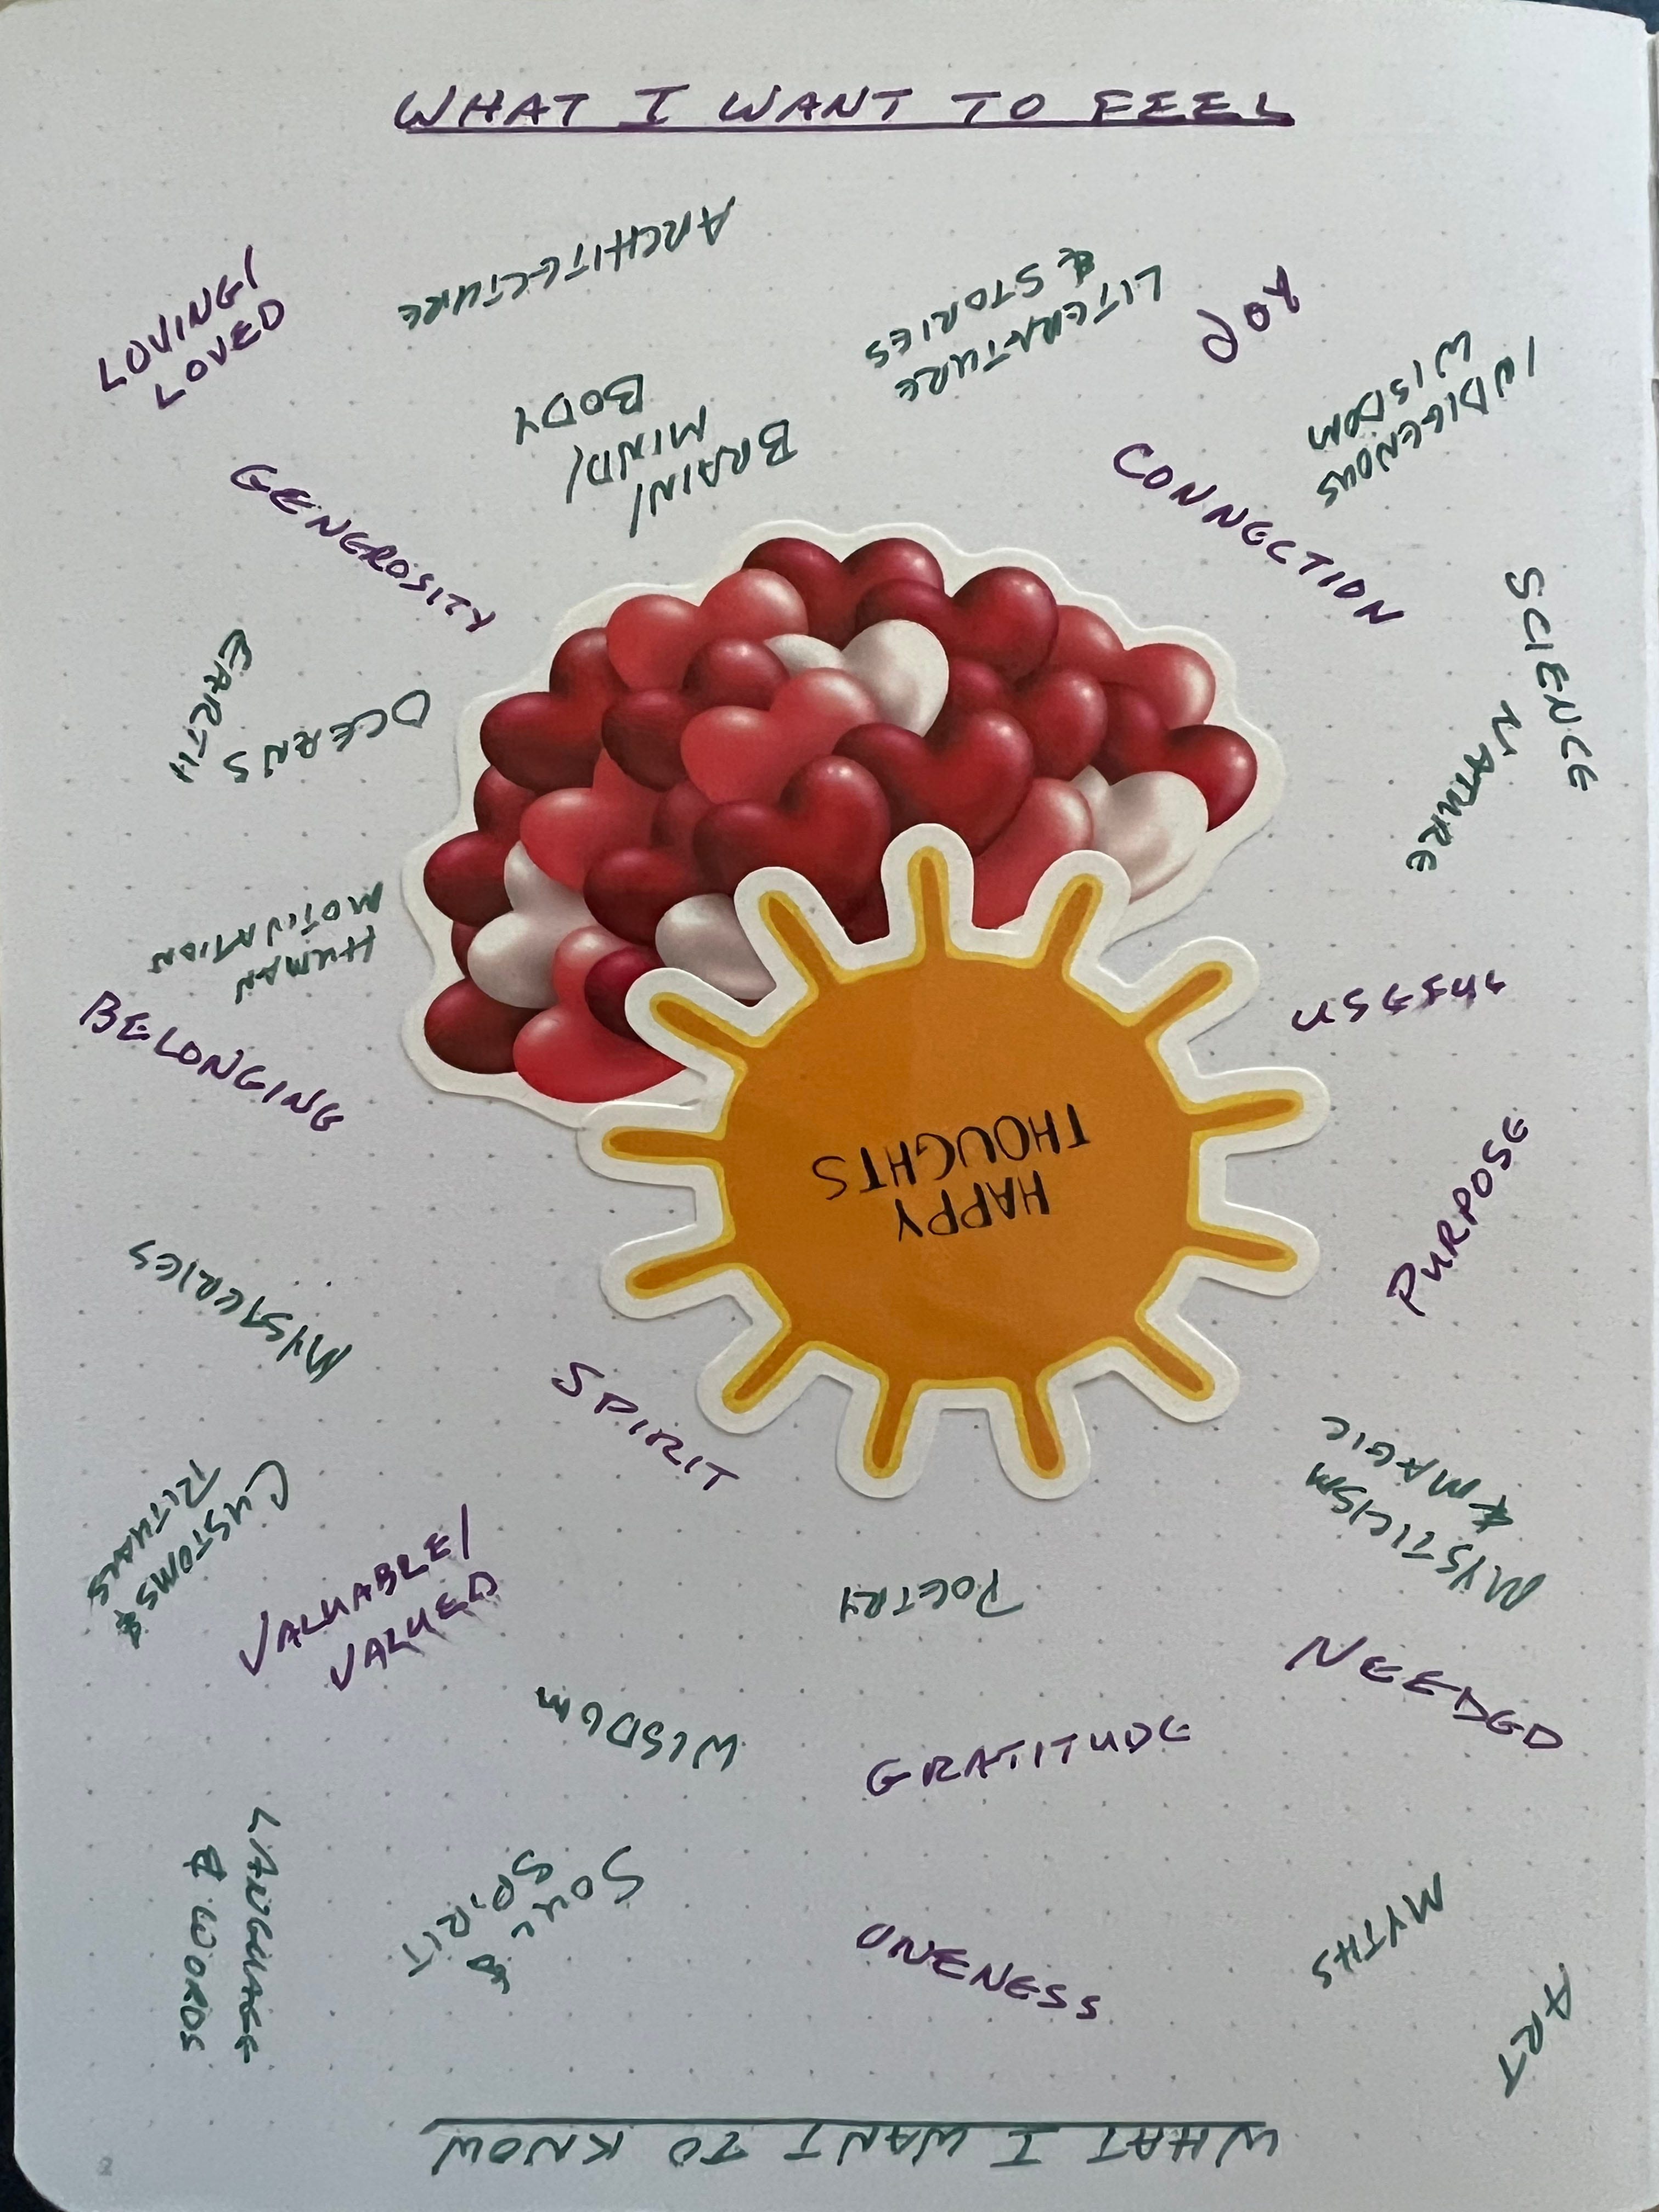 WHAT I WANT TO FEEL
LOVING/
LOVED
JOY
GENEROSITY
CONNECTION
BELONGING
USEFUL
PURPOSE
SPIRIT
VALUABLE/
VALUED
NEEDED
GRATITUDE
ONENESS
WHAT I WANT TO KNOW
ART
MYTHS
SOUL &
SPIRIT
LANGUAGE
& WORDS
WISDOM
POETRY
MYSTICISM
& MAGIC
CUSTOMS &
RITUALS
MYSTERIES
HAPPY
THOUGHTS
HUMAN
MOTIVATION
NATURE
SCIENCE
OCEANS
EARTH
INDIGENOUS
WISDOM
BRAIN/
MIND/
BODY
LITERATURE
& STORIES
ARCHITECTURE
2